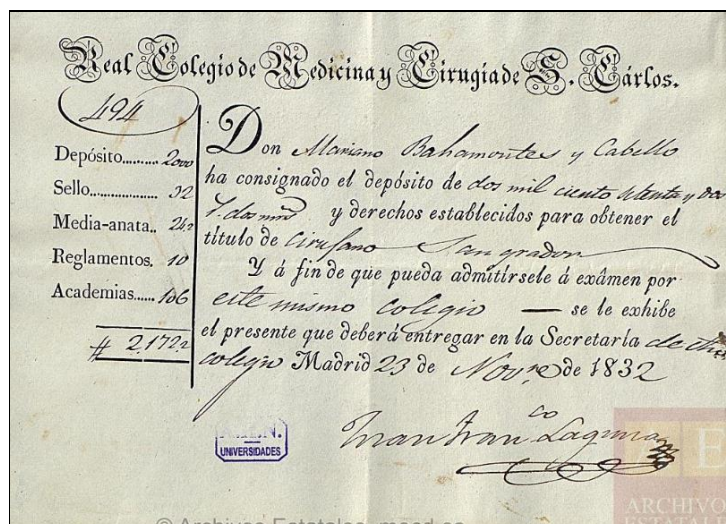 Real Colegio de Medicina y Cirugía de S. Cárlos.
494
Depósito......... 2000
Sello.................. 32
Media-anata.. 24,,2
Reglamentos. 10
Academias...... 106
# 2,172,,2
Don Mariano Bahamontes y Cabello
ha consignado el depósito de dos mil ciento setenta y dos
y dos mrs y derechos establecidos para obtener el
título de Cirujano Sangrador
Y á fin de que pueda admitírsele á exámen por
este mismo colegio — se le exhibe
el presente que deberá entregar en la Secretaría de
colegio Madrid 23 de Novre de 1832
Juan Franco Laguna
UNIVERSIDADES
A E
ARCHIVO
© Archivos Estatales, mecd.es